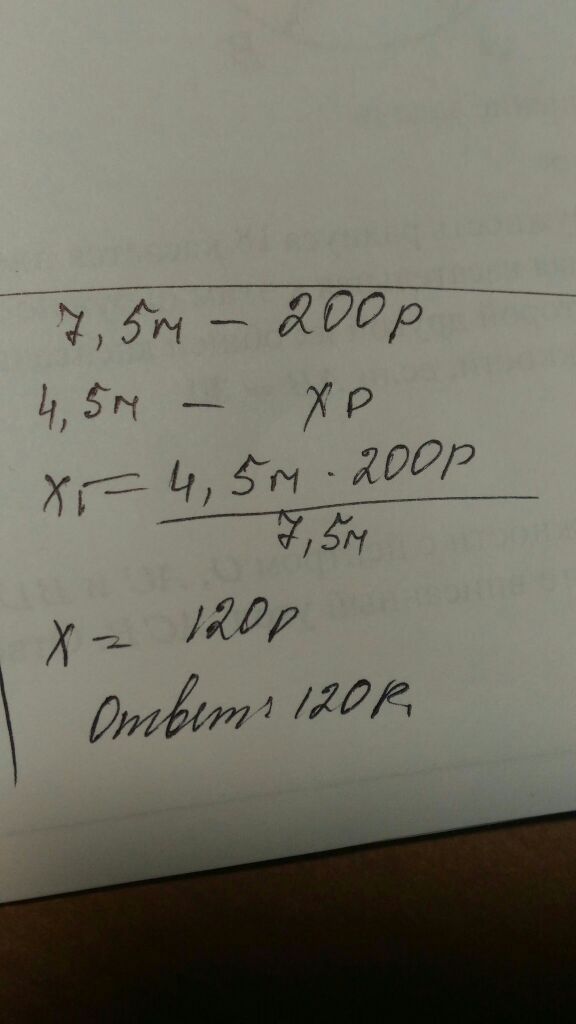 7,5м – 200р
4,5м – хр
х = 4,5м · 200р
7,5м
х = 120р
Ответ: 120р.